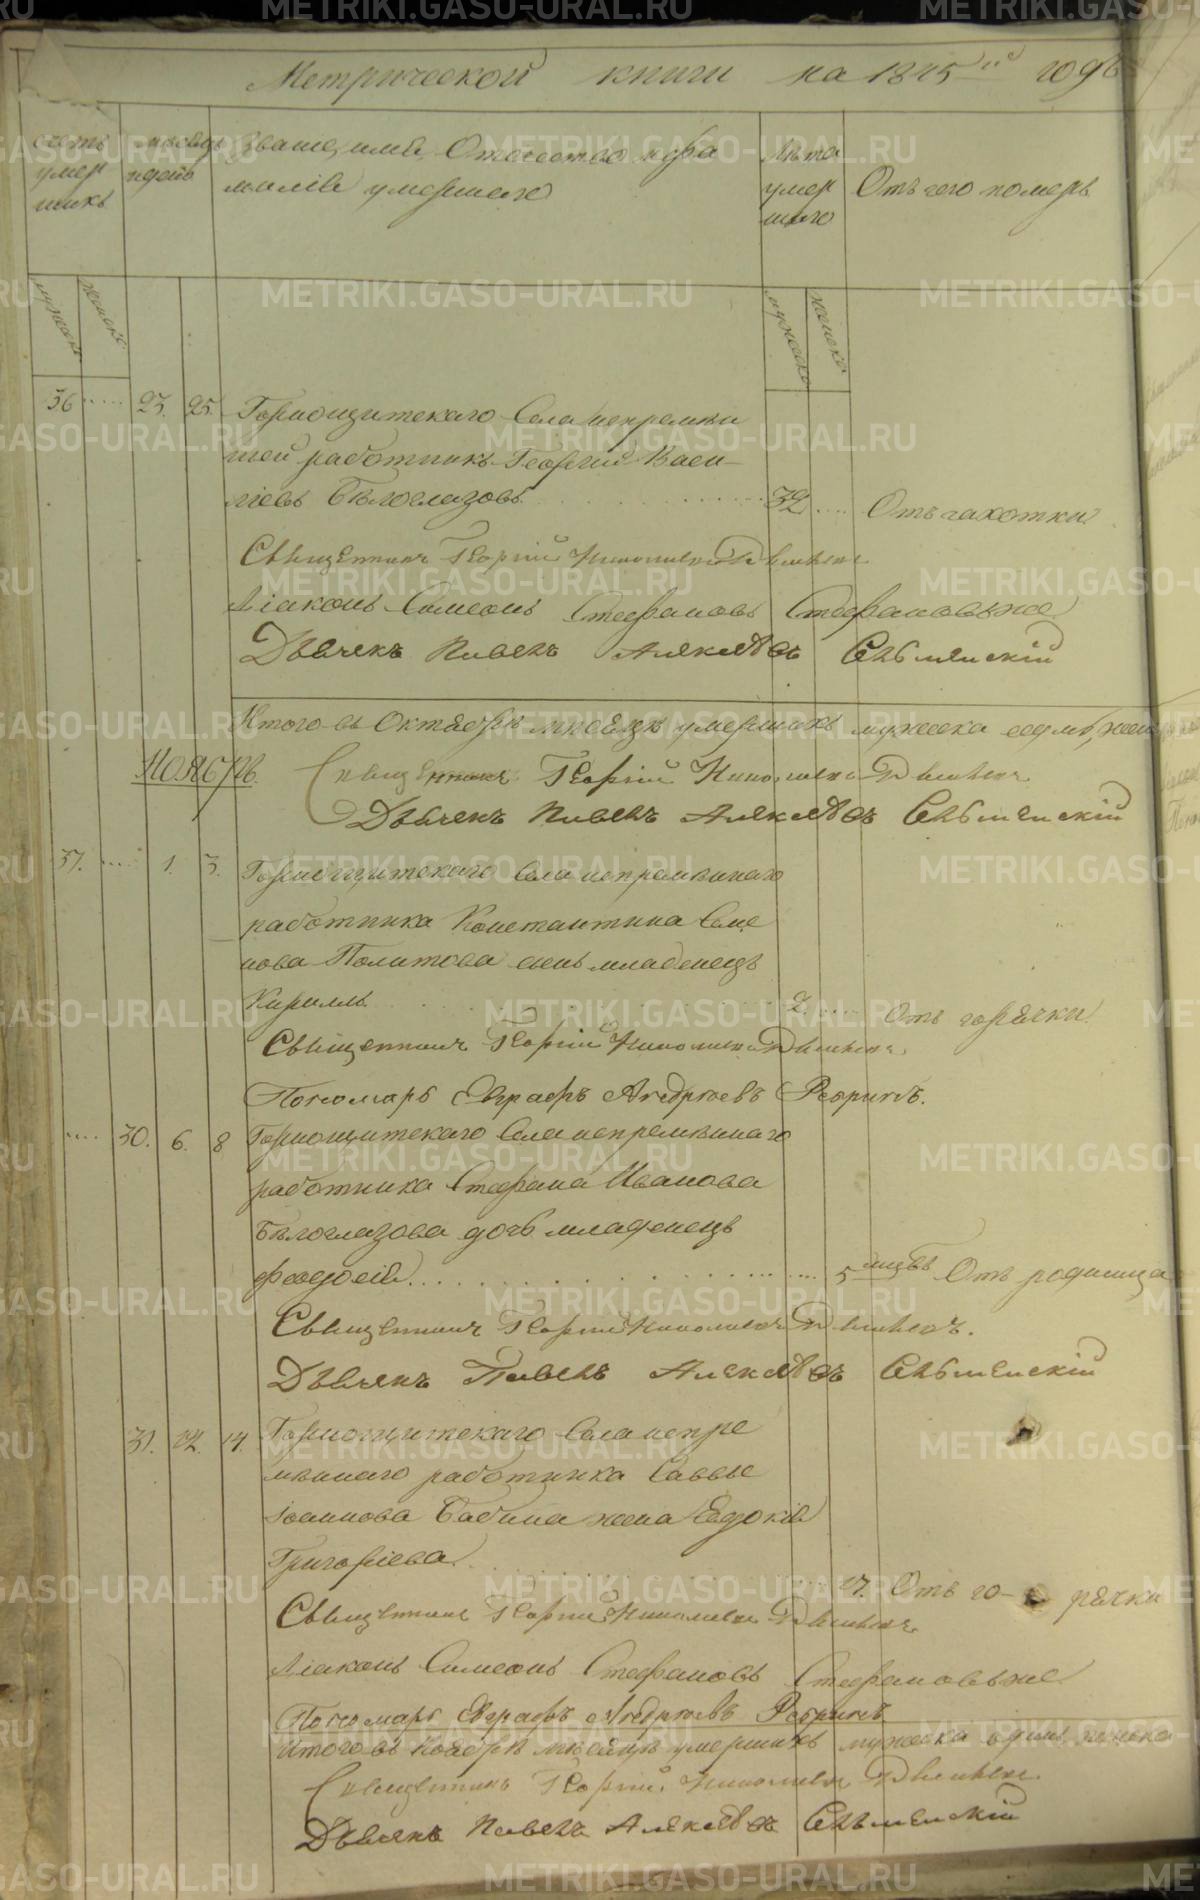 Метрической книги на 1845й годъ
счетъ умер шихъ
мѣсяцъ и день
Званіе, имя, Отечество и фа
милія умершаго
Лѣта умер шаго
Отъ чего померъ
мужеска
женска
мужеска
женска
36 ..... 23. 25. Горнощитскаго Села непремѣн
ный работникъ Георгій Васи-
ліевъ Бѣлоглазовъ 32 .... Отъ чахотки
Священникъ Георгій Николаевъ
Діаконъ Симеонъ Стефановъ Стефановыхъ
Дьячекъ Павелъ Алексѣевъ
Итого въ Октябрѣ мѣсяцѣ умершихъ мужеска седмь, жен
Ноябрь.
Священникъ Георгій Николаевъ
Дьячекъ Павелъ Алексѣевъ
37. .... 1. 3. Горнощитскаго Села непремѣннаго
работника Константина Семе
нова Политова сынъ младенецъ
Кириллъ 2. .... Отъ горячки
Священникъ Георгій Николаевъ
Пономарь Евграфъ Андреевъ
.... 30. 6. 8 Горнощитскаго Села непремѣннаго
работника Стефана Иванова
Бѣлоглазова дочь младенецъ
Феодосія 5 мцовъ Отъ родимца
Священникъ Георгій Николаевъ
Дьячекъ Павелъ Алексѣевъ
31. 12. 14. Горнощитскаго Села непре
мѣннаго работника Саввы
Іоаннова Бабина жена Евдокія
Григоріева 27. Отъ го- рячки
Священникъ Георгій Николаевъ
Діаконъ Симеонъ Стефановъ Стефановыхъ
Пономарь Евграфъ Андреевъ
Итого въ Ноябрѣ мѣсяцѣ умершихъ мужеска одинъ, женска
Священникъ Георгій Николаевъ
Дьячекъ Павелъ Алексѣевъ
METRIKI.GASO-URAL.RU